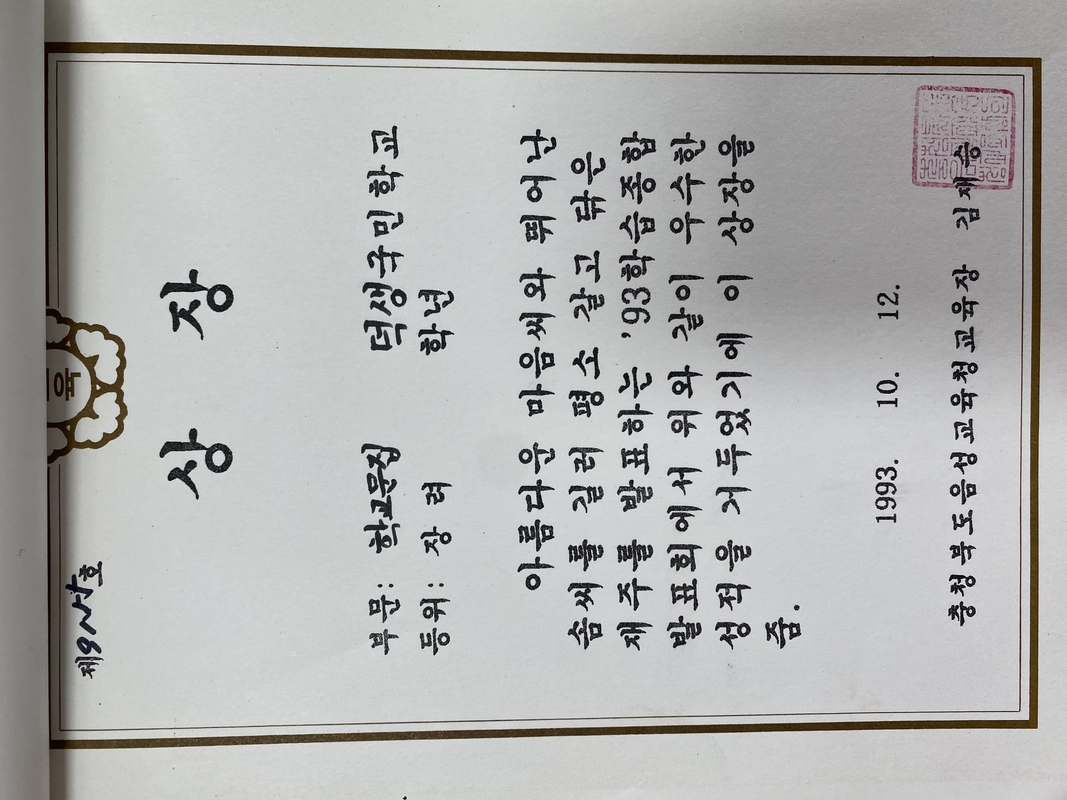 제 호
육
상 장
부 문: 학교문집 덕생국민학교
등 위: 장 려 학년
아름다운 마음씨와 뛰어난
솜씨를 길러 평소 갈고 닦은
재주를 발표하는 '93학습종합
발표회에서 위와 같이 우수한
성적을 거두었기에 이 상장을
줌.
1993. 10. 12.
충청북도음성교육청교육장 김재승